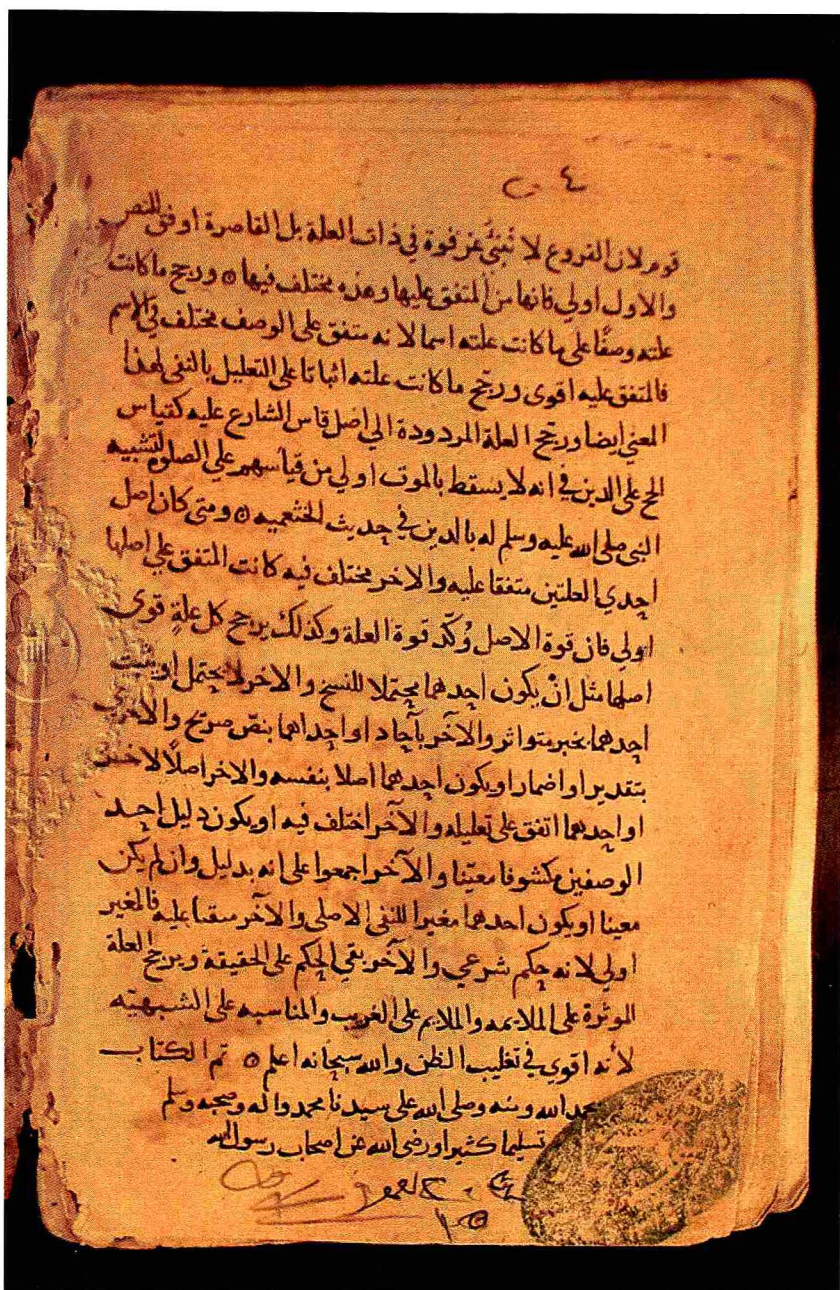 ٤
قوم لان الفروع لا تُنبئُ عن قوة في ذات العلة بل القاصرة اوفق للنص
والاول اولي فانها من المتفق عليها وهذه مختلف فيها ه ورجح ما كانت
علته وصفًا على ما كانت علته اسما لانه متفق على الوصف مختلف في الاسم
فالمتفق عليه اقوى ورجّح ما كانت علته اثباتا على التعليل بالنفى لهذا
المعني ايضا ورجح العلة المردودة الي اصل قاس الشارع عليه كقياس
الحج على الدين في انه لا يسقط بالموت اولي من قياسهم علي الصلوة لتشبيه
النبى صلى الله عليه وسلم له بالدين في حديث الخثعميه ه ومتى كان اصل
احدي العلتين متفقا عليه والاخر مختلف فيه كانت المتفق علي اصلها
اولي فان قوة الاصل تُوكّد قوة العلة وكذلك يرجح كل علةٍ قوى
اصلها مثل انْ يكون احدهما محتملا للنسخ والاخر لا يحتمل او يثبت
احدهما بخبر متواتر والآخر بآحاد او احداهما بنصّ صريح والاخرى
بتقدير او اضمار او يكون احدهما اصلا بنفسه والاخر اصلًا لاخر
او احدهما اتفق على تعليله والآخر اختلف فيه او يكون دليل احد
الوصفين مكشوفا معيّنا والآخر اجمعوا على انه بدليل وان لم يكن
معينا او يكون احدهما مغيرا للنفى الاصلى والآخر مبقيا عليه فالمغير
اولي لانه حكم شرعي والآخر بقي الحكم على الحقيقة ويرجح العلة
الموثرة على الملايمه والملايم على الغريب والمناسبه على الشبهيّه
لأنه اقوي في تغليب الظن والله سبحانه اعلم ه تم الكتاب
بحمد الله ومنه وصلى الله على سيدنا محمد واله وصحبه وسلم
تسليما كثيرا ورضى الله عن اصحاب رسول الله